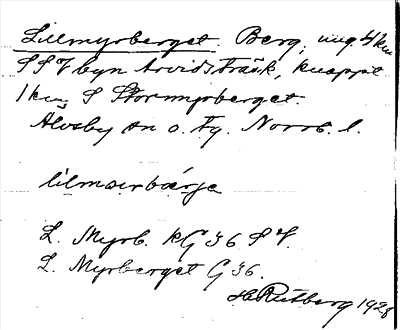 Lillmyrberget. Berg, ung. 4 km
SSV byn Arvidsträsk, knappt
1 km S Stormyrberget.
Älvsby sn o. tg. Norrb. l.
lilmoirbærje
L. Myrb. KG 36 SV.
L. Myrberget G 36.
H. Rutberg 1928